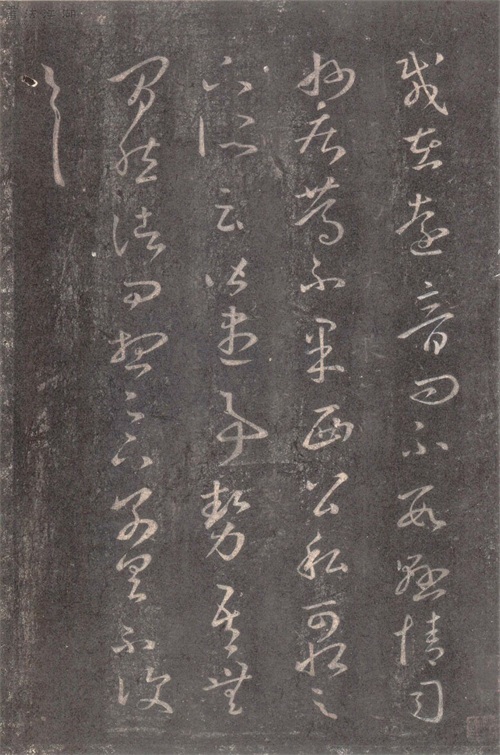 載在遠音問不數懸情司
州疾篤不果西公私可恨足
下所云皆盡事勢吾無
間然諸問想足下別具不復
一一